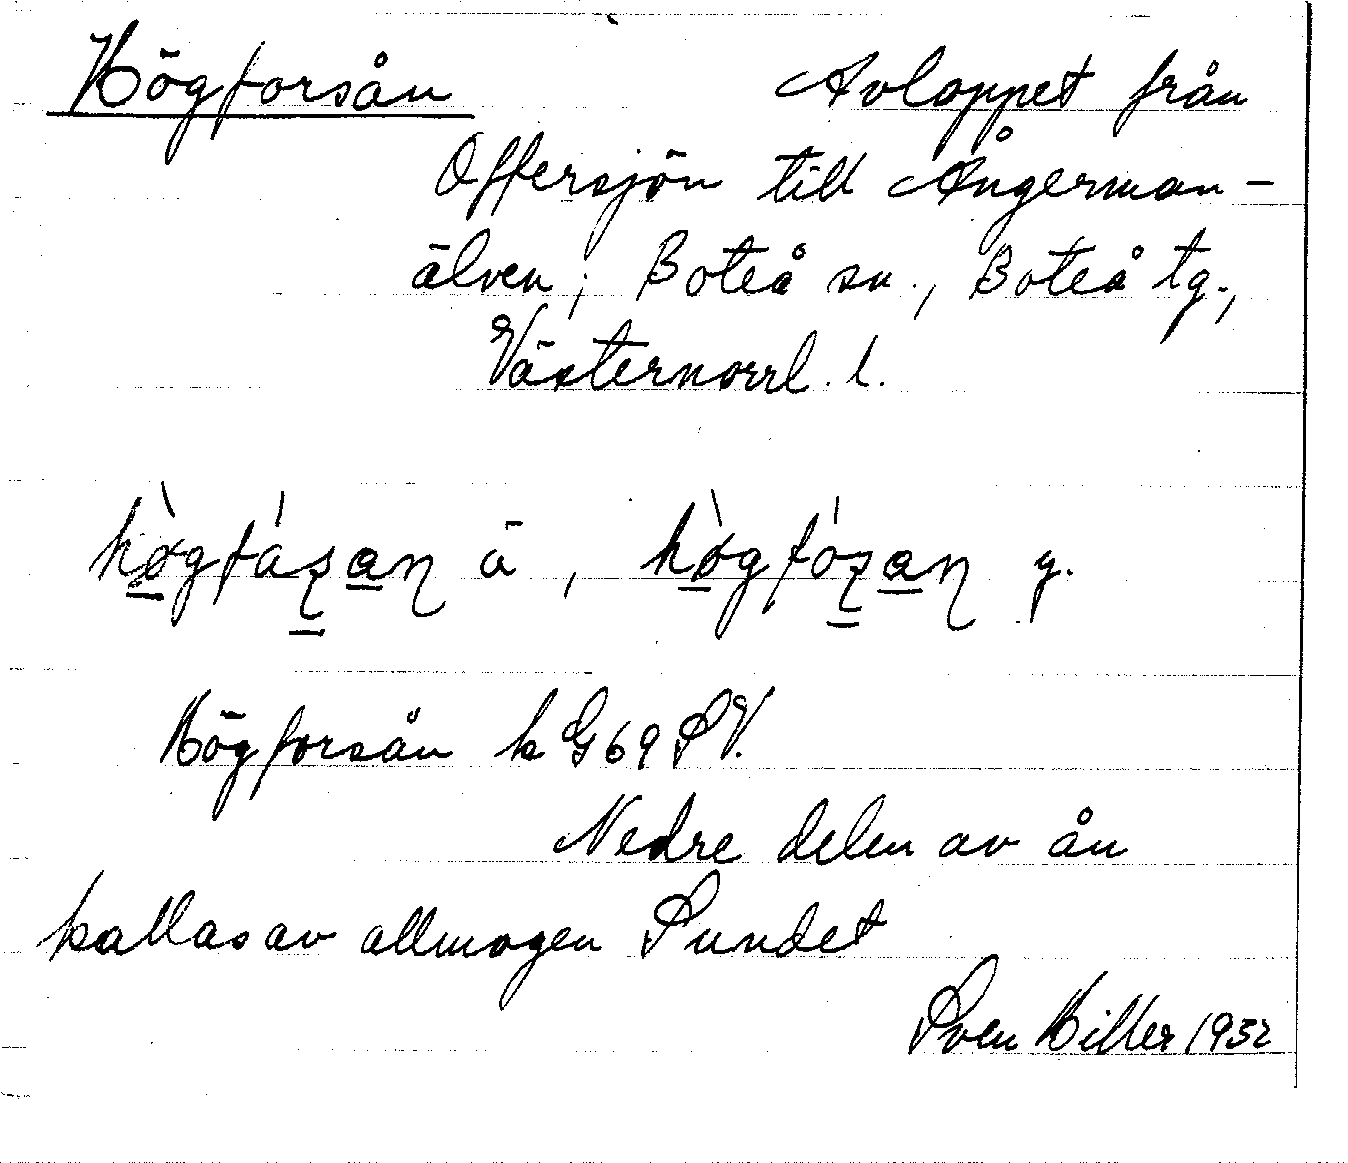 Högforsån Avloppet från
Offersjön till Ångerman-
älven; Boteå sn., Boteå tg.,
Västernorrl. l.
ä , y.
Högforsån k G69 SV.
Nedre delen av ån
kallas av allmogen Sundet
Sven Hiller 1932